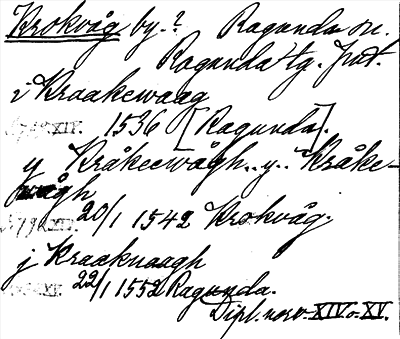 Krokvåg by.? Ragunda sn.
Ragunda tg. Jmt.
i Kraakewaag
1536 [Ragunda].
y Kråkeewågh.. y.. Kråke-
wågh
20/1 1542 Krokvåg.
j Kraakuaagh
22/1 1552 Ragunda.
Dipl. norv. XIV o. XV.